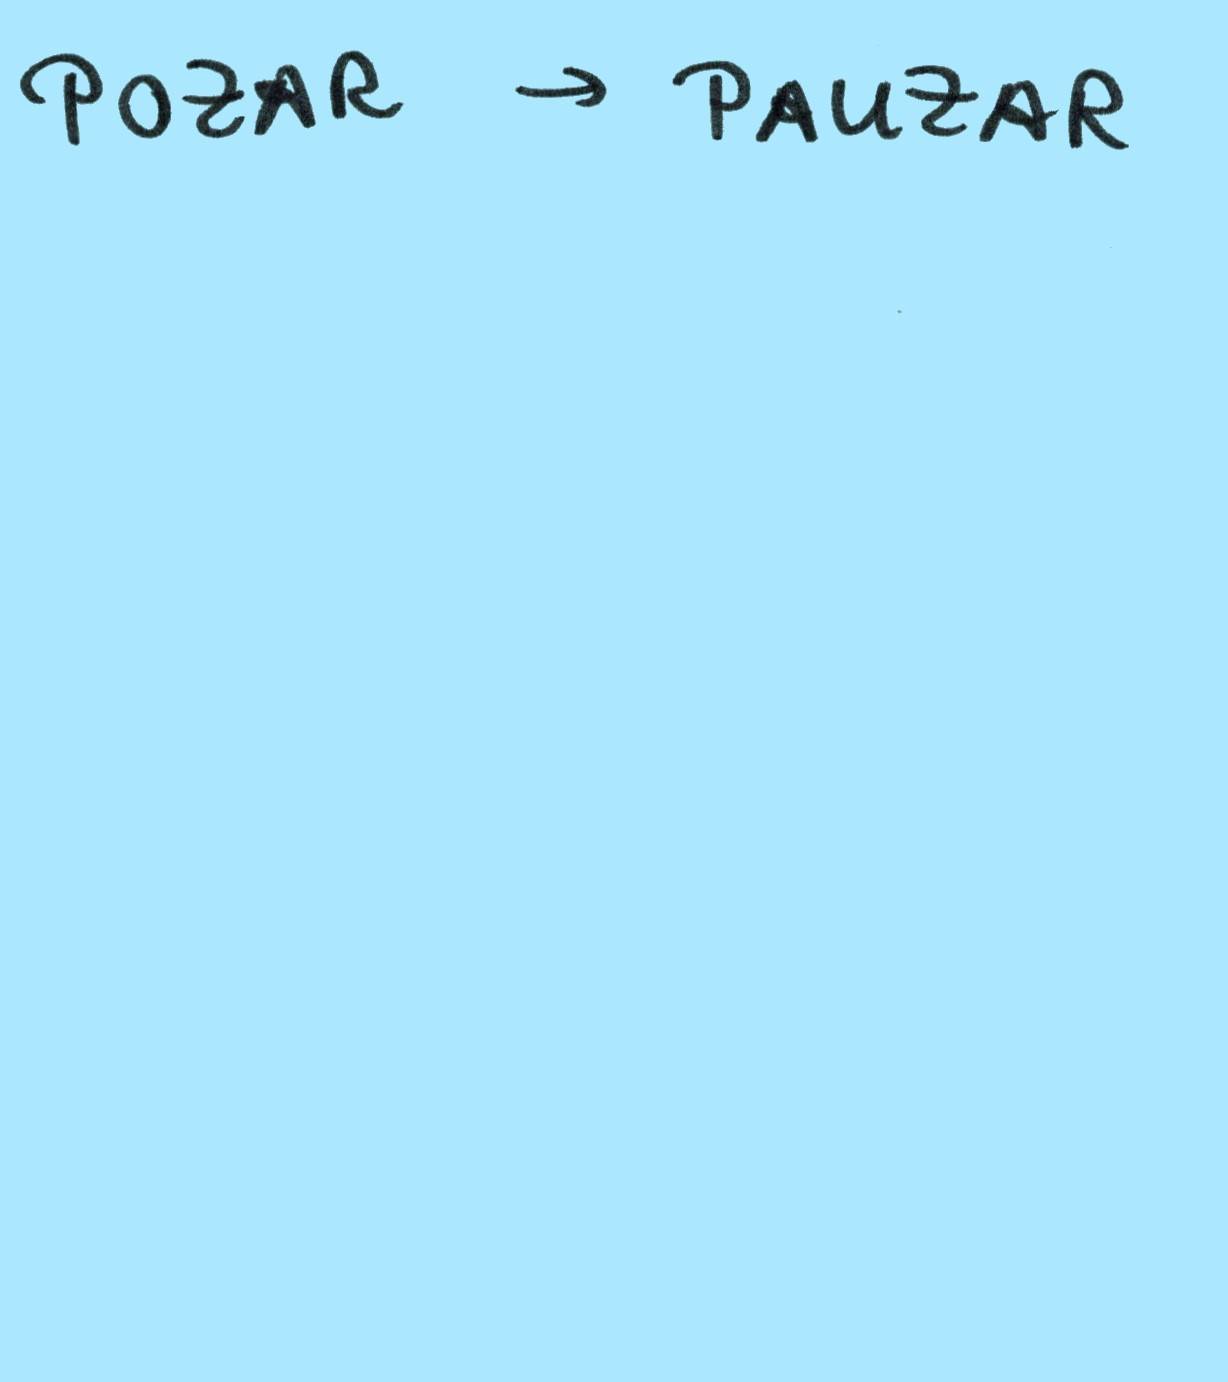 POZAR → PAUZAR